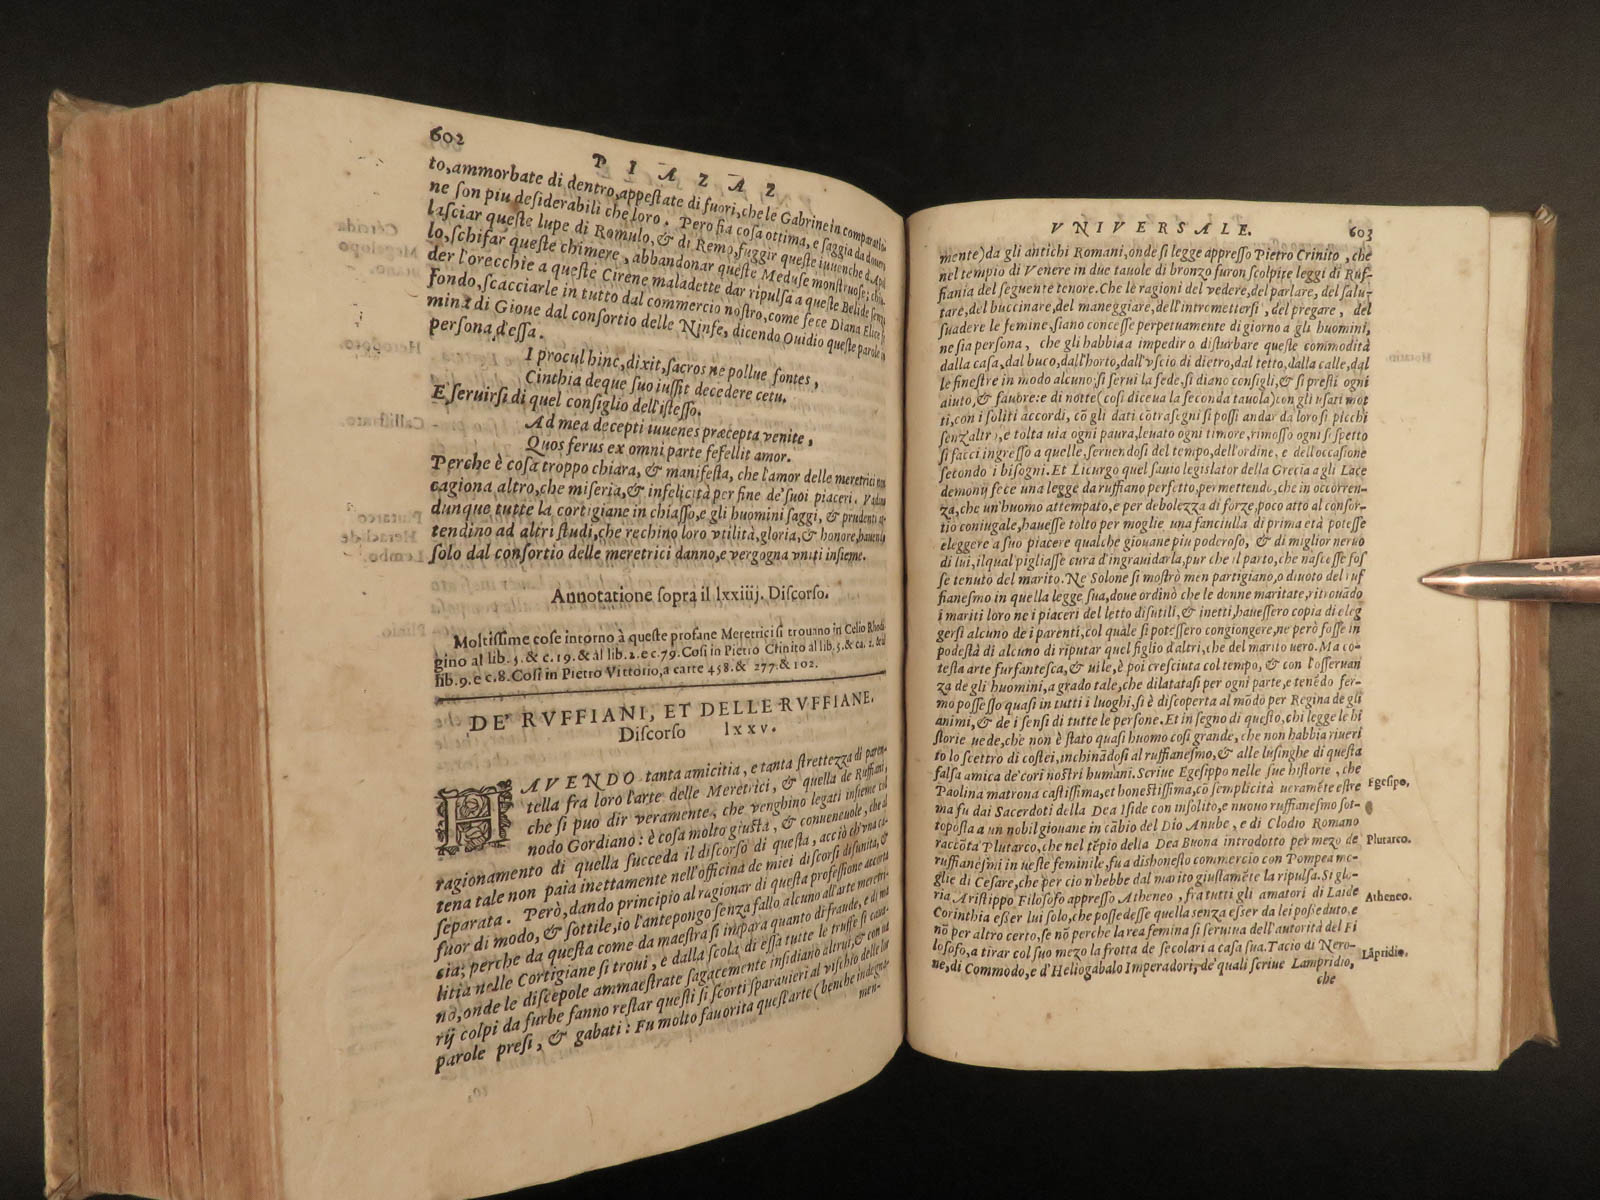 602
PIAZAZ
to, ammorbate di dentro, appeſtate di fuori, che le Gabrine in comparatio
ne ſon piu deſiderabili che loro. Pero fia coſa ottima, e ſaggia da doueri
laſciar queſte lupe di Romulo, & di Remo, fuggir queſte iuuenche d'Apol
lo, ſchifar queſte chimere, abbandonar queſte Meduſe monſtruoſe; chiu
der l'orecchie a queſte Cirene maladette dar ripulſa a queſte Belide ſenza
fondo, ſcacciarle in tutto dal commercio noſtro, come fece Diana Elice fe
mina di Gioue dal conſortio delle Ninfe, dicendo Ouidio queſte parole in
perſona d'eſſa.
I procul hinc, dixit, ſacros ne pollue fontes,
Cinthia deque ſuo iuſſit decedere cetu.
E ſeruirſi di quel conſiglio dell'iſteſſo.
Ad mea decepti iuuenes præcepta venite,
Quos ferus ex omni parte fefellit amor.
Perche è coſa troppo chiara, & manifeſta, che l'amor delle meretrici non
cagiona altro, che miſeria, & infelicità per fine de' ſuoi piaceri. Vadano
dunque tutte la cortigiane in chiaſſo, e gli huomini ſaggi, & prudenti at
tendino ad altri ſtudi, che rechino loro vtilità, gloria, & honore, hauendo
ſolo dal conſortio delle meretrici danno, e vergogna vniti inſieme.
Annotatione ſopra il lxxiiij. Diſcorſo.
Moltiſſime coſe intorno à queſte profane Meretrici ſi trouano in Celio Rhodi
gino al lib. 5. & c. 19. & al lib. 2. e c. 79. Coſi in Pietro Crinito al lib. 5. & ca. 2. & al
lib. 9. e c. 8. Coſi in Pietro Vittorio, a carte 458. & 277. & 102.
DE' RVFFIANI, ET DELLE RVFFIANE.
Diſcorſo lxxv.
HAVENDO tanta amicitia, e tanta ſtrettezza di paren-
tella fra loro l'arte delle Meretrici, & quella de Ruffiani,
che ſi puo dir veramente, che venghino legati inſieme col
nodo Gordiano: è coſa molto giuſta, & conueneuole, che al
ragionamento di quella ſucceda il diſcorſo di queſta, acciò ch'vna ca-
tena tale non paia inettamente nell'officina de miei diſcorſi diſunita, &
ſeparata. Però, dando principio al ragionar di queſta profeſſione accorta
fuor di modo, & ſottile, io l'antepongo ſenza fallo alcuno all'arte meretri-
cia; perche da queſta come da maeſtra ſi impara quanto di fraude, e di ma
litia nelle Cortigiane ſi troui, e dalla ſcola di eſſa tutte le truffe ſi caua-
no, onde le diſcepole ammaeſtrate ſagacemente inſidiano altrui, & con va
rij colpi da furbe fanno reſtar queſti ſi ſcorti ſparauieri al viſchio delle lor
parole preſi, & gabati: Fu molto fauorita queſt'arte (benche indegna-
men-
VNIVERSALE.
603
mente) da gli antichi Romani, onde ſi legge appreſſo Pietro Crinito, che
nel tempio di Venere in due tauole di bronzo furon ſcolpite leggi di Ruf-
fiania del ſeguente tenore. Che le ragioni del vedere, del parlare, del ſalu-
tare, del buccinare, del maneggiare, dell'intrometterſi, del pregare, del
ſuadere le femine, ſiano conceſſe perpetuamente di giorno a gli huomini,
ne ſia perſona, che gli habbia a impedir o diſturbare queſte commodità
dalla caſa, dal buco, dall'horto, dall'vſcio di dietro, dal tetto, dalla calle, dal
le fineſtre in modo alcuno; ſi ſerui la fede, ſi diano conſigli, & ſi preſti ogni
aiuto, & fauore: e di notte (coſi diceua la ſeconda tauola) con gli vſati mot
ti, con i ſoliti accordi, cō gli dati cōtraſegni ſi poſſi andar da loro ſi picchi
ſenz'altro, e tolta via ogni paura, leuato ogni timore, rimoſſo ogni ſoſpetto
ſi facci ingreſſo a quelle, ſeruendoſi del tempo, dell'ordine, e dell'occaſione
ſecondo i biſogni. Et Licurgo quel ſauio legiſlator della Grecia a gli Lace
demonij fece una legge da ruffiano perfetto, permettendo, che in occorren-
za, che un'huomo attempato, e per debolezza di forze, poco atto al conſor-
tio coniugale, haueſſe tolto per moglie una fanciulla di prima età poteſſe
eleggere a ſuo piacere qualche giouane piu poderoſo, & di miglior neruo
di lui, il qual pigliaſſe cura d'ingrauidarla, pur che il parto, che naſceſſe foſ
ſe tenuto del marito. Ne Solone ſi moſtrò men partigiano, o diuoto del ruf
fianeſmo in quella legge ſua, doue ordinò che le donne maritate, ritrouādo
i mariti loro ne i piaceri del letto diſutili, & inetti, haueſſero copia di eleg
gerſi alcuno de i parenti, col quale ſi poteſſero congiongere, ne però foſſe in
podeſtà di alcuno di riputar quel figlio d'altri, che del marito uero. Ma co-
teſta arte furfanteſca, & uile, è poi creſciuta col tempo, & con l'oſſeruan
za de gli huomini, a grado tale, che dilatataſi per ogni parte, e tenēdo fer-
mo poſſeſſo quaſi in tutti i luoghi, ſi è diſcoperta al mōdo per Regina de gli
animi, & de i ſenſi di tutte le perſone. Et in ſegno di queſto, chi legge le hi
ſtorie uede, che non è ſtato quaſi huomo coſi grande, che non habbia riueri
to lo ſcettro di coſtei, inchinādoſi al ruffianeſmo, & alle luſinghe di queſta
falſa amica de' cori noſtri humani. Scriue Egeſippo nelle ſue hiſtorie, che
Paolina matrona caſtiſſima, et honeſtiſſima, cō ſemplicità ueramēte eſtre
ma fu dai Sacerdoti della Dea Iſide con inſolito, e nuouo ruffianeſmo ſot-
topoſta a un nobil giouane in cābio del Dio Anube, e di Clodio Romano
raccōta Plutarco, che nel tēpio della Dea Buona introdotto per mezo de
ruffianeſmi in ueſte feminile, fu a dishoneſto commercio con Pompea mo-
glie di Ceſare, che per cio n'hebbe dal marito giuſtamēte la ripulſa. Si glo-
ria Ariſtippo Filoſofo appreſſo Atheneo, fra tutti gli amatori di Laide
Corinthia eſſer lui ſolo, che poſſedeſſe quella senza eſſer da lei poſſeduto, e
nō per altro certo, ſe nō perche la rea femina ſi ſeruiua dell'autorità del Fi
loſofo, a tirar col ſuo mezo la frotta de ſecolari a caſa ſua. Tacio di Nero-
ne, di Commodo, e d'Heliogabalo Imperadori, de' quali ſcriue Lampridio,
che
Egeſipo,
Plutarco.
Atheneo.
Lāpridio.